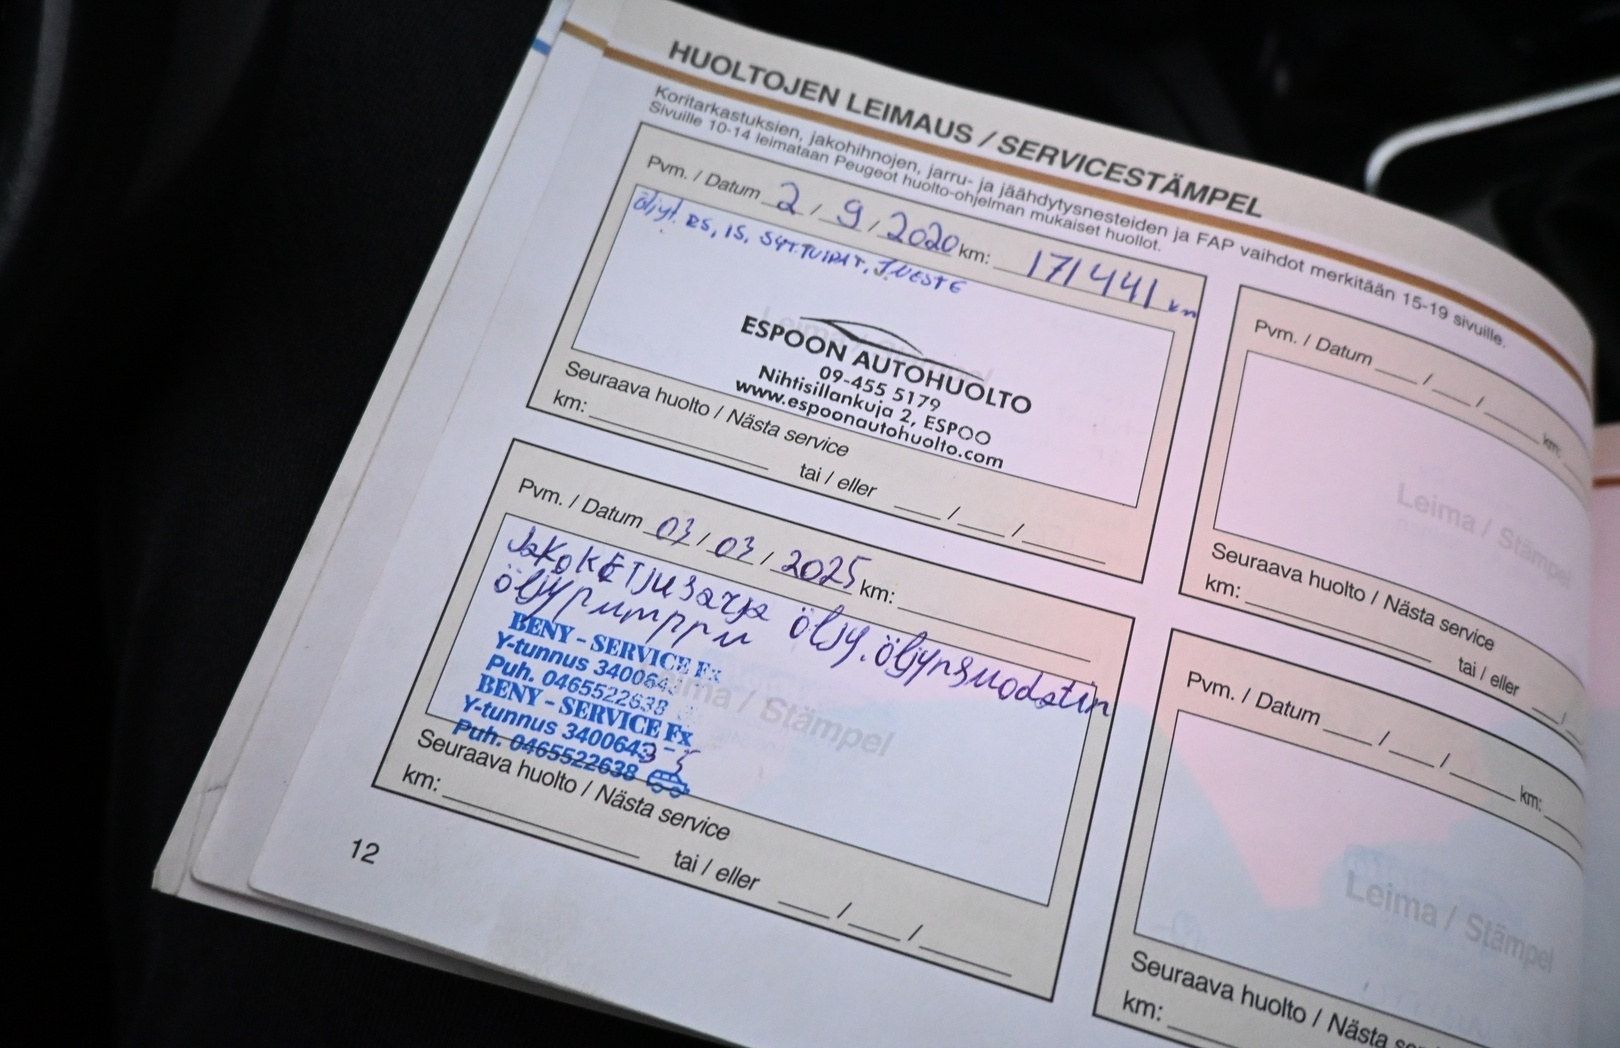 HUOLTOJEN LEIMAUS / SERVICESTÄMPEL
Koritarkastuksien, jakohihnojen, jarru- ja jäähdytysnesteiden ja FAP vaihdot merkitään 15-19 sivuille.
Sivuille 10-14 leimataan Peugeot huolto-ohjelman mukaiset huollot.
Pvm. / Datum 2 / 9 / 2020 km: 171441 km
öljyt. RS, IS, SYT.TULPAT, J.NESTE
ESPOON AUTOHUOLTO
09-455 5179
Nihtisillankuja 2, ESPOO
www.espoonautohuolto.com
Seuraava huolto / Nästa service
km: tai / eller / /
Pvm. / Datum 03 / 03 / 2025 km:
JaKOKETJUsarja öljy. öljynsuodatin
öljypumppu
BENY - SERVICE Fx
Y-tunnus 340064
Puh. 0465522638
BENY - SERVICE Fx
Y-tunnus 3400643 - 5
Puh. 0465522638
Leima / Stämpel
Seuraava huolto / Nästa service
km: tai / eller / /
12
Pvm. / Datum / / km:
Leima / Stämpel
Seuraava huolto / Nästa service
km: tai / eller /
Pvm. / Datum / / km:
Leima / Stämpel
Seuraava huolto / Nästa service
km: